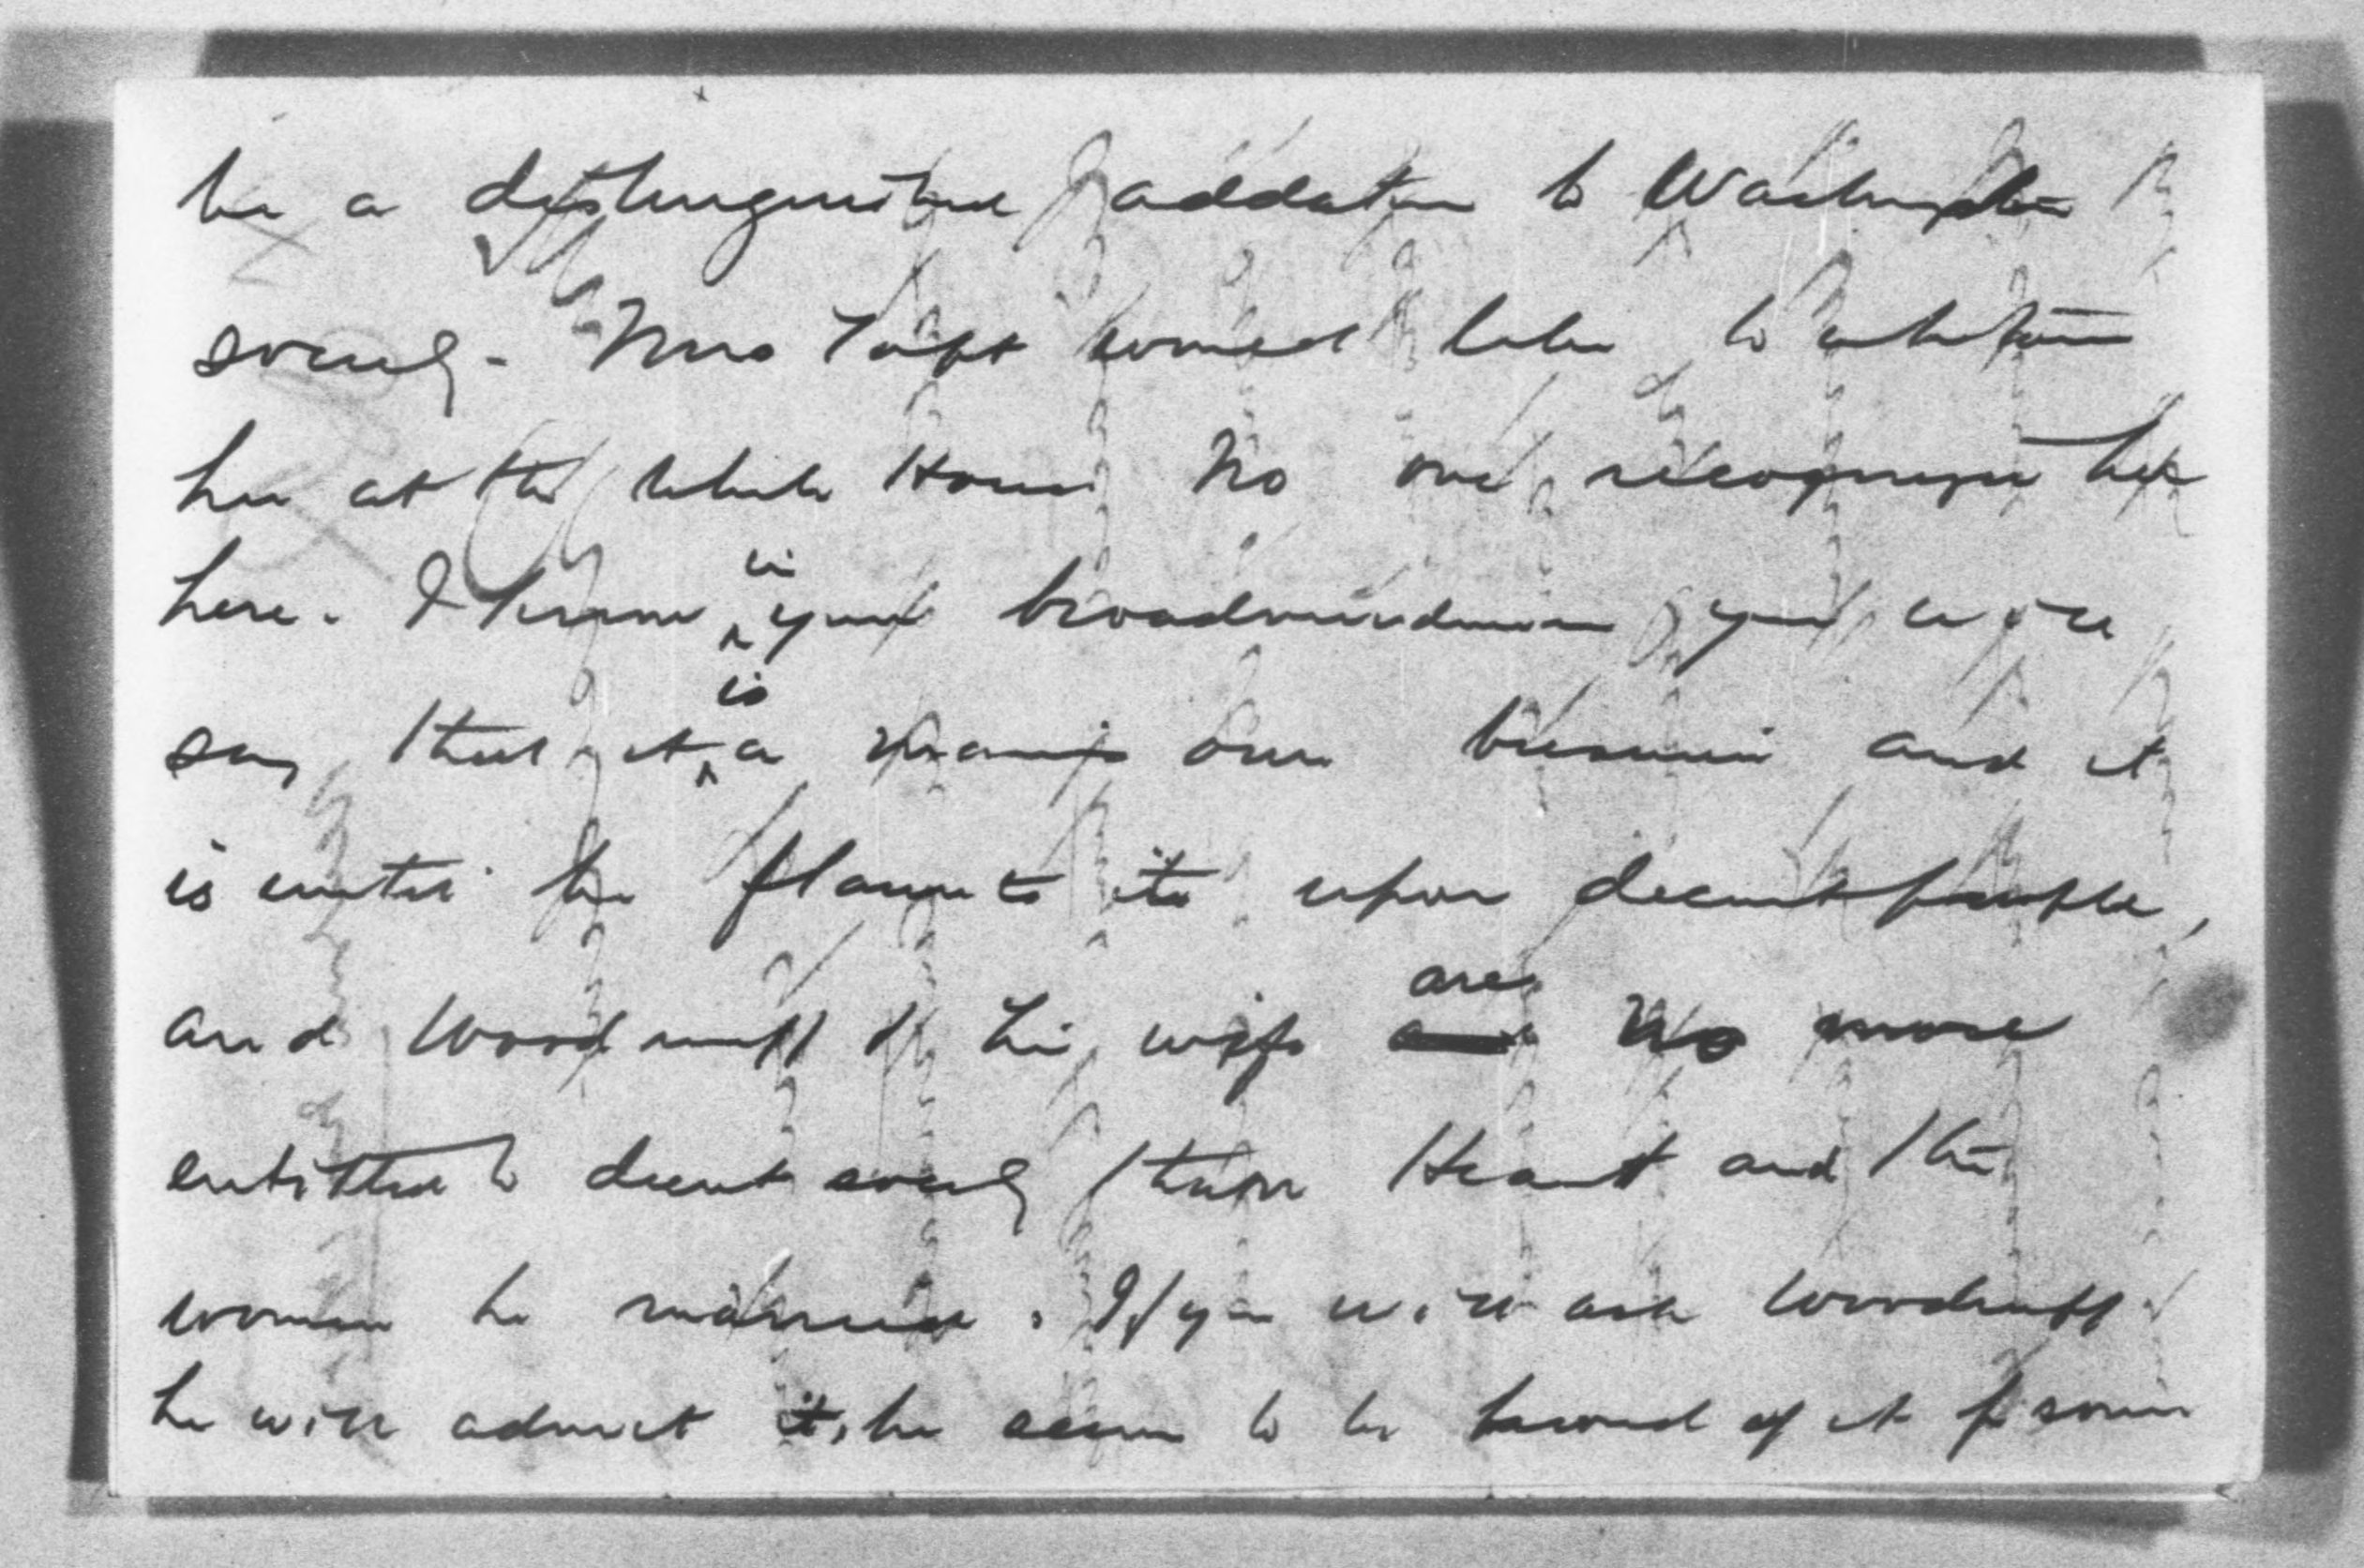 be a distinguished addition to Washington
society - Mrs Taft would like to entertain
her at the White House No one recognizes her
here. I know in your broadmindedness you will
say that it is a man's own business and it
is until he flaunts it upon decent people,
and Woodruff & his wife are no more
entitled to decent society than Heart and the
woman he married. If you will ask Woodruff
he will admit it, he seems to be proud of it for some